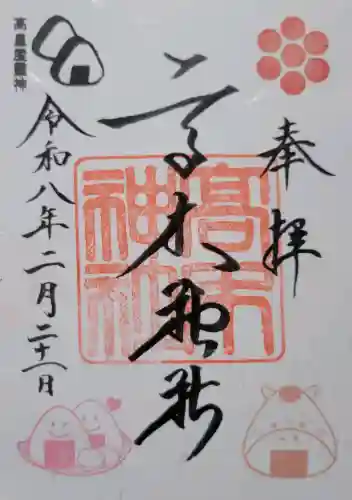 奉拝
高木神社
高木神社
令和八年二月二十一日